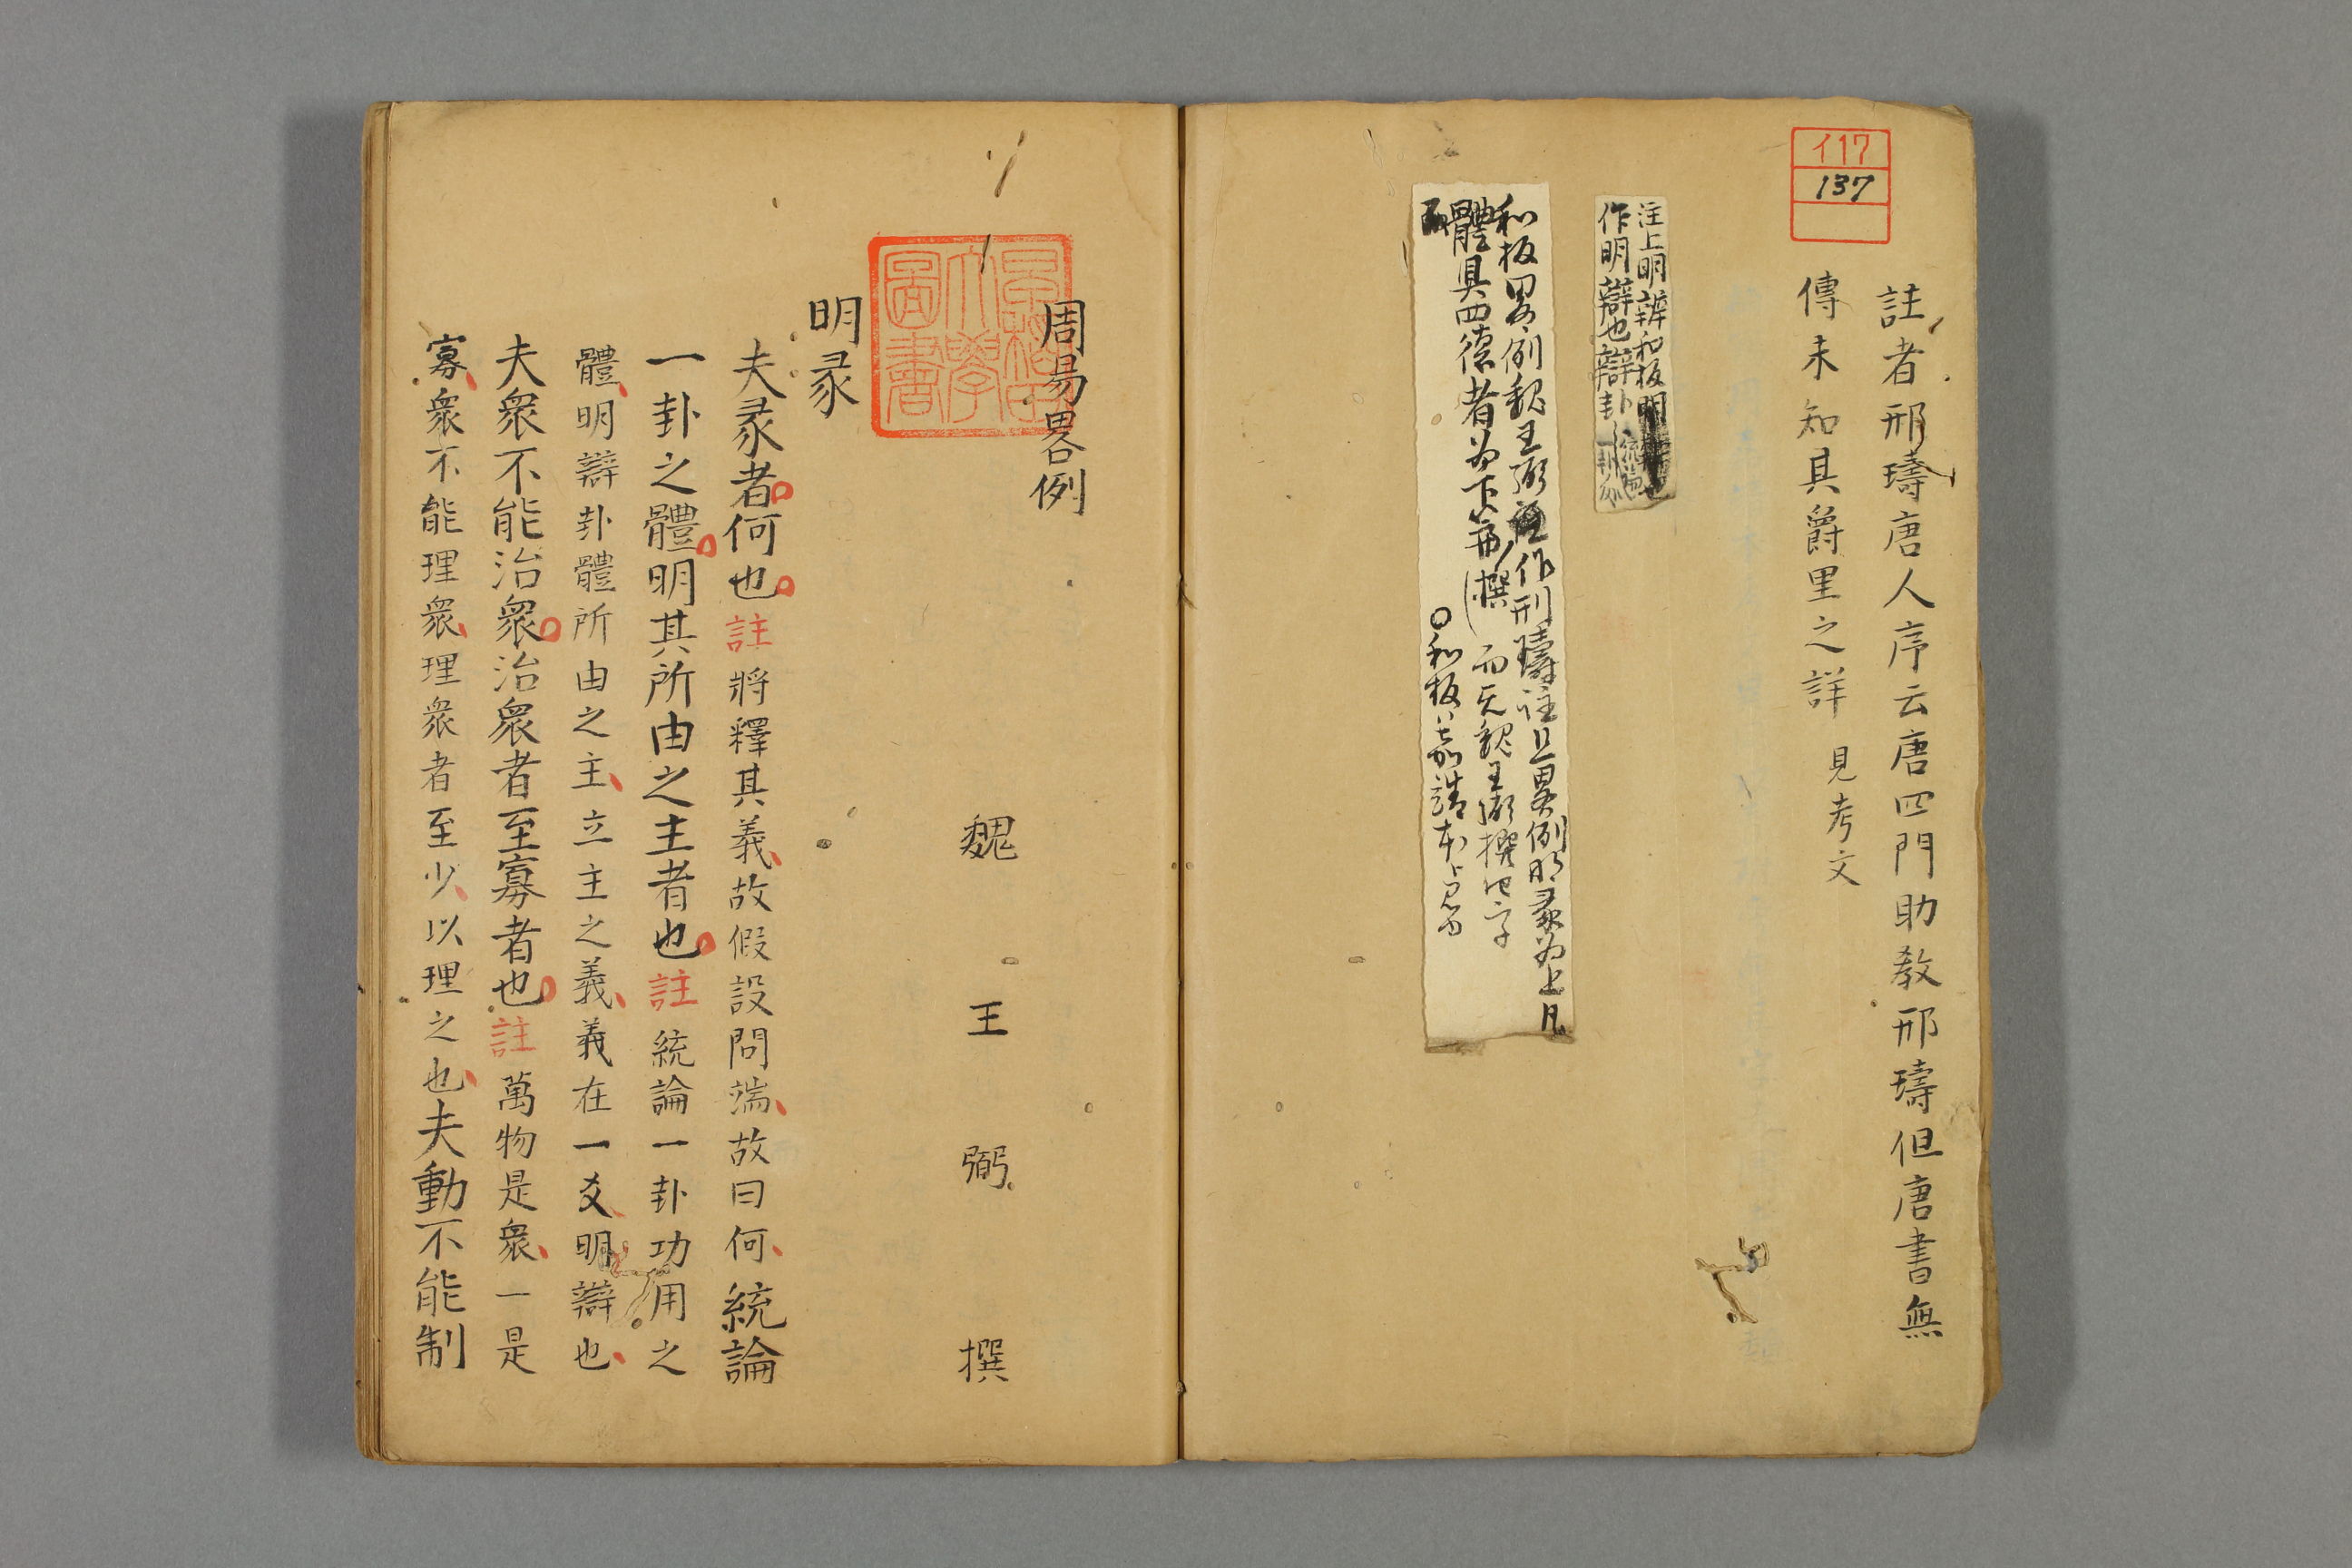 イ17
137
註者邢璹唐人序云唐四門助教邢璹但唐書無
傳未知其爵里之詳 見考文
注上明辨和板明
作明辯也辯卦
和板畧例魏王弼作刑璹註且畧例明彖為上凡
體具四德者為下篇 撰 而无魏王弼撰四字
○和板
周易畧例
魏 王 弼 撰
早稲田大學圖書
明彖
夫彖者何也註將釋其義故假設問端故曰何統論
一卦之體明其所由之主者也註統論一卦功用之
體明辯卦體所由之主立主之義義在一爻明辯也
夫衆不能治衆治衆者至寡者也註萬物是衆一是
寡衆不能理衆理衆者至少以理之也夫動不能制